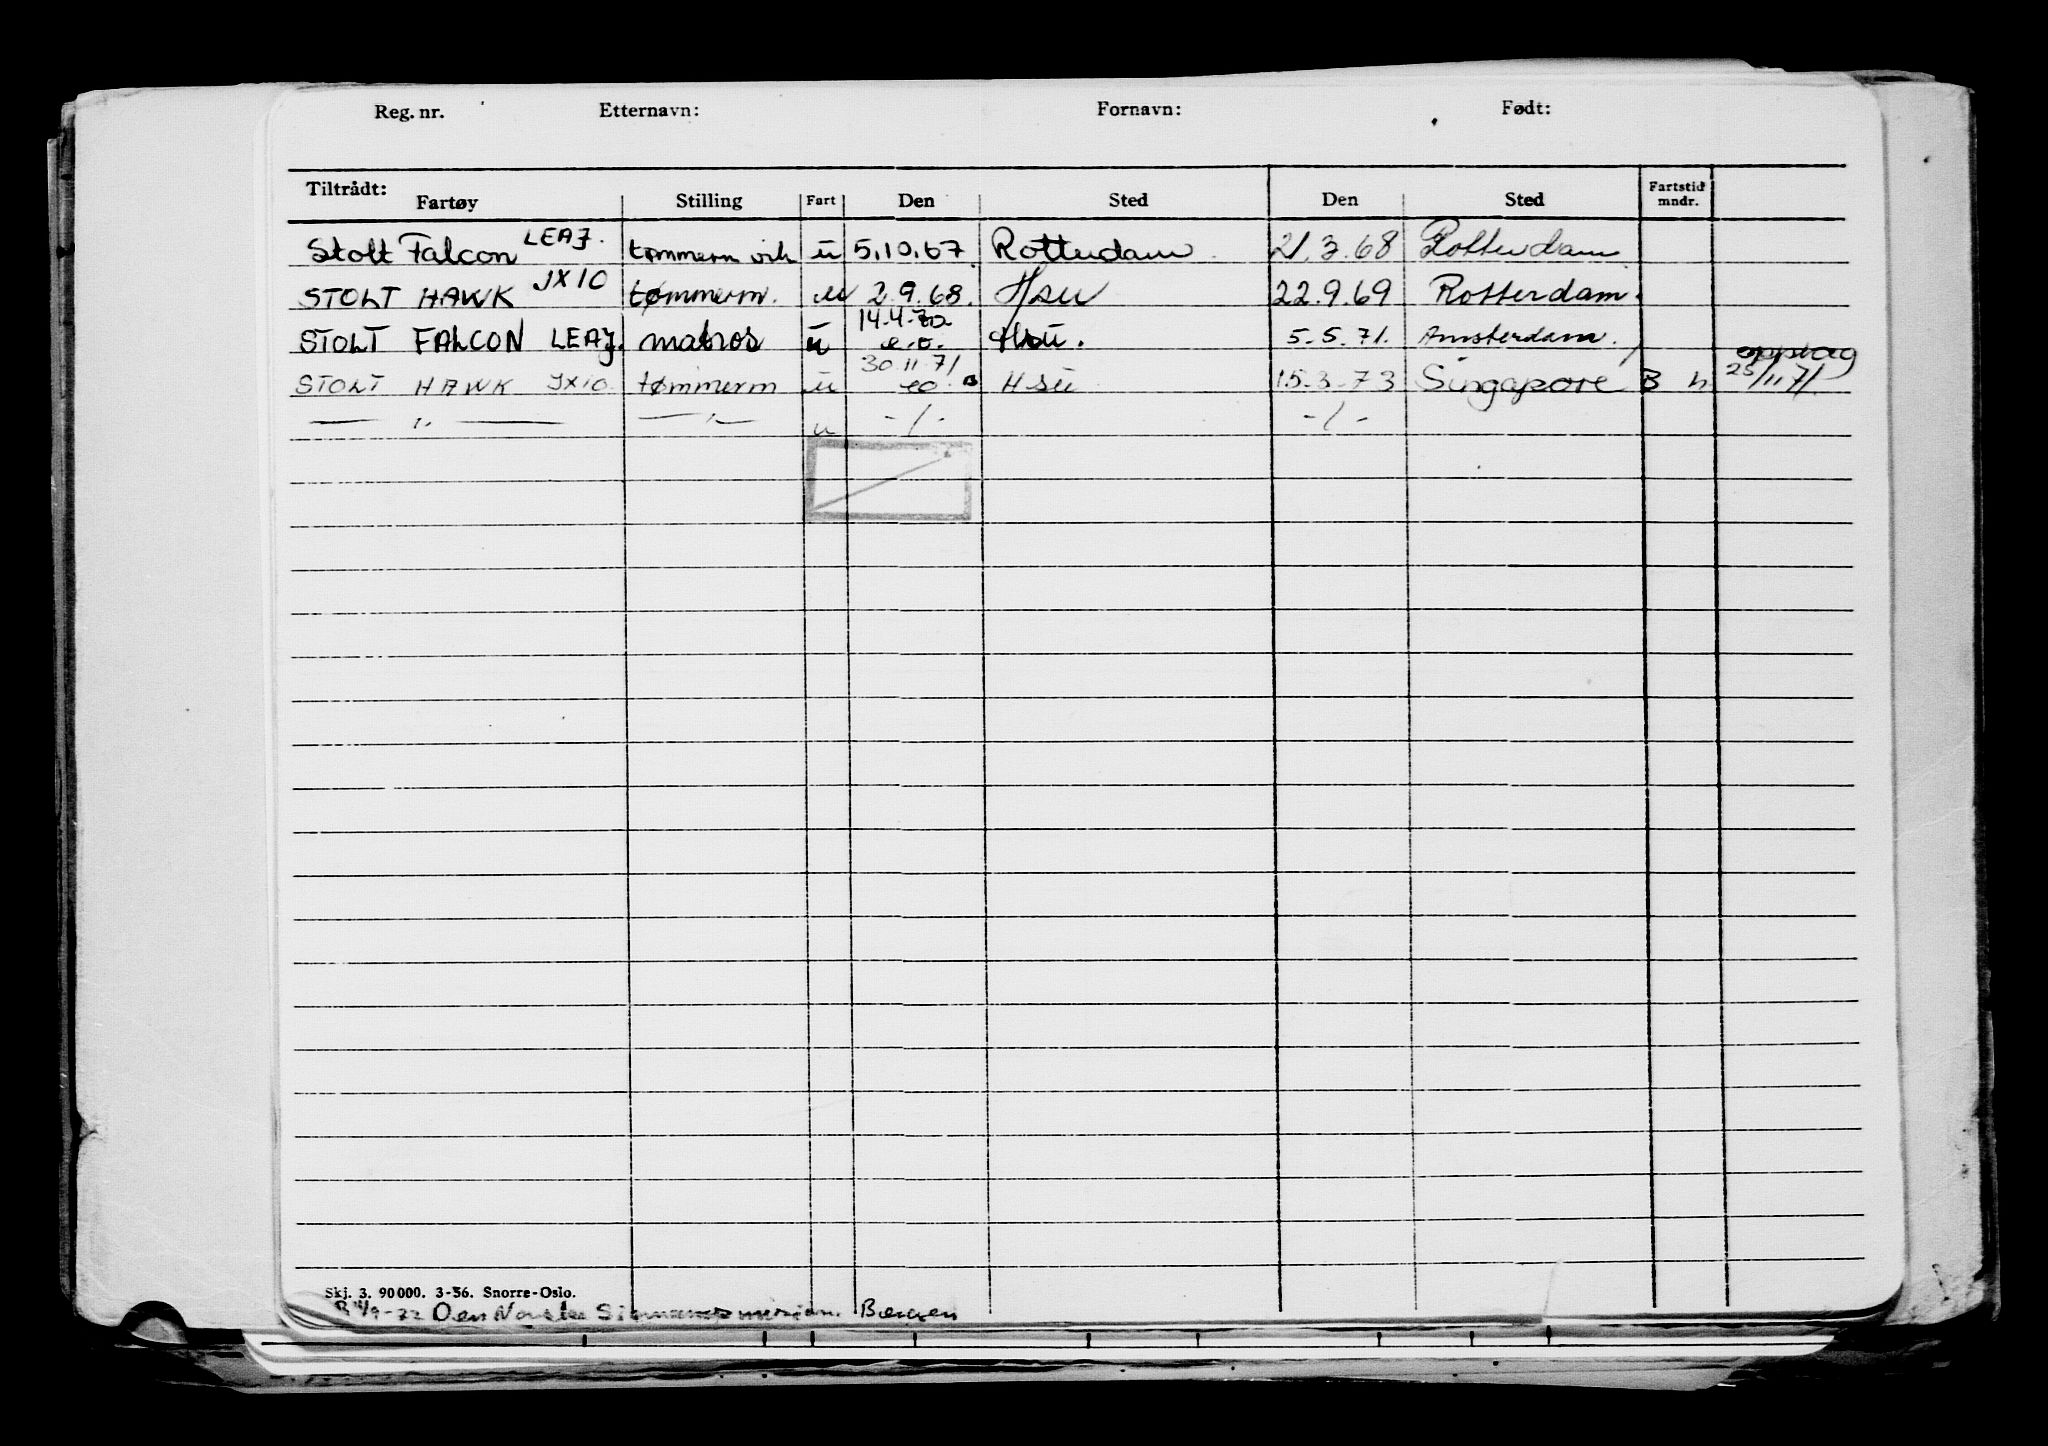 Reg. nr. Etternavn: Fornavn: Født:
Tiltrådt:
Fartøy Stilling Fart Den Sted Den Sted Fartstid mndr.
Stolt Falcon LEAJ. tømmerm vik u 5.10.67 Rotterdam 21.3.68 Rotterdam
STOLT HAWK JX10 tømmerm. u 2.9.68. Hsu 22.9.69 Rotterdam.
14.4.70
STOLT FALCON LEAJ. matros u e.o. Hsu. 5.5.71. Amsterdam.
30.11.71 opptag
STOLT HAWK JX10. tømmerm u eo Hsu 15.3.73 Singapore B h 25/11.71.
— " — — " — u -/- -/-
Skj. 3. 90 000. 3-56. Snorre-Oslo.
Den Norske Bergen